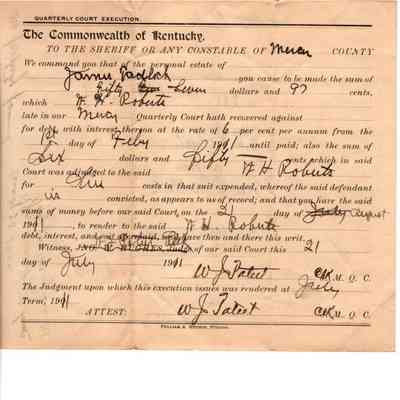 QUARTERLY COURT EXECUTION.
The Commonwealth of Kentucky,
TO THE SHERIFF OR ANY CONSTABLE OF Mercer COUNTY
We command you that of the personal estate of
James you cause to be made the sum of
Fifty Seven dollars and 97 cents,
which W. H. Roberts
late in our Mercer Quarterly Court hath recovered against
for debt, with interest thereon at the rate of 6 per cent per annum from the
1st day of Feby 1911 until paid; also the sum of
Six dollars and Fifty cents which in said
Court was adjudged to the said W H Roberts
for his costs in that suit expended, whereof the said defendant
is convicted, as appears to us of record; and that you have the said
sums of money before our said Court, on the 21 day of July August
1911, to render to the said W. H. Roberts
debt, interest, and cost aforesaid, and have then and there this writ.
Witness, JNO. E. HUGHES, Judge of our said Court this 21
day of July 1911 W J Tatest Clk M. Q. C.
The Judgment upon which this execution issues was rendered at July
Term, 1911
ATTEST: W J Tatest Clk M. Q. C.